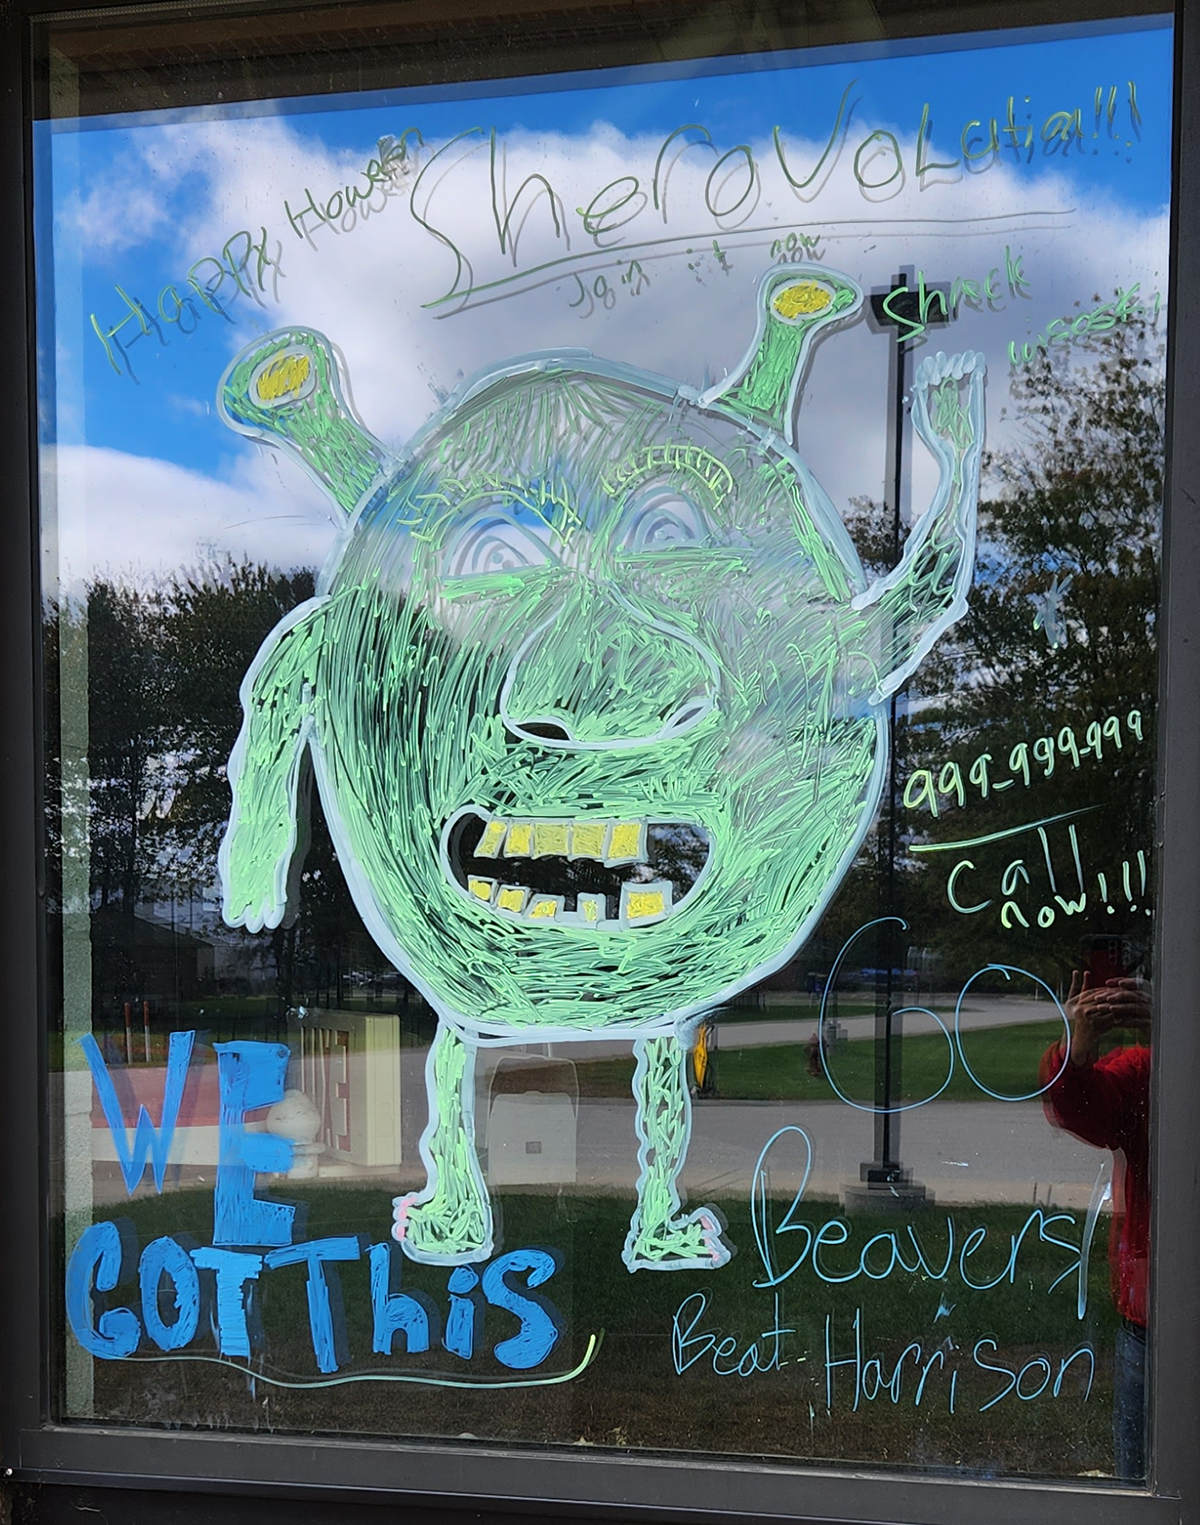 Happy Hoween
Sherovolation!!!
Join it now
Shreck
wisoski
999-999-999
Call
now!!!
GO
Beavers!
Beat Harrison
WE
GOT This